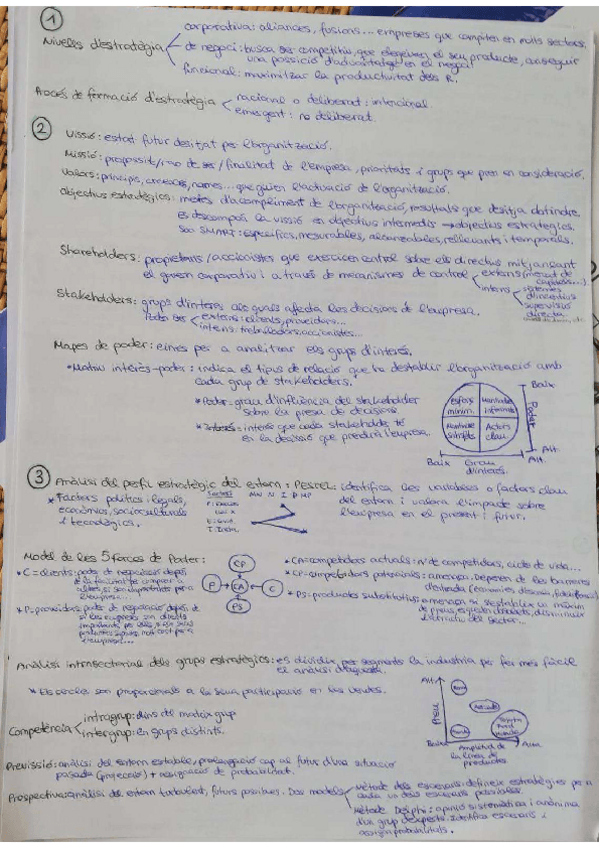 1
Nivells d'estratègia
corporativa: aliances, fusions... empreses que competen en molts sectors.
de negoci: busca ser competitiu, que elegeixen el seu producte, aconseguir
una posició d'advantatge en el negoci
funcional: maximitzar la productivitat dels R.
Procés de formació d'estratègia
racional o deliberat: intencional
emergent: no deliberat
2
Visió: estat futur desitjat per l'organització.
Missió: propòsit/raó de ser/finalitat de l'empresa, prioritats i grups que pren en consideració.
Valors: principis, creences, normes... que guien l'actuació de l'organització.
Objectius estratègics: metes d'acompliment de l'organització, resultats que desitja obtindre
es descompon la visió en objectius intermedis → objectius estratègics.
Són SMART: específics, mesurables, alcançables, rellevants i temporals.
Shareholders: propietaris/accionistes que exerceixen control sobre els directius mitjançant
el govern corporatiu i a través de mecanismes de control
externs (mercat de
capitals...)
interns
sistemes
d'incentius
supervisió
directa
Stakeholders: grups d'interés als quals afecta les decisions de l'empresa.
Poden ser
externs: clients, proveïdors...
interns: treballadors, accionistes...
Mapes de poder: eines per a analitzar els grups d'interés.
* Matriu interés-poder: indica el tipus de relació que ha d'establir l'organització amb
cada grup de stakeholders.
* Poder = grau d'influència del stakeholder
sobre la presa de decisions
* Interés = interés que cada stakeholder té
en la decisió que prendrà l'empresa.
Esforç
mínim
Mantindre
informats
Mantindre
satisfets
Actors
clau
Baix
Poder
Alt
Baix Grau Alt
d'interés
3
Anàlisi del perfil estratègic del entorn: Pestel: identifica les variables o factors clau
del entorn i valora l'impacte sobre
l'empresa en el present i futur.
* Factors polítics i legals,
econòmics, socioculturals
i tecnològics.
MN N I P MP
Model de les 5 forces de Poder:
* C = clients: poder de negociació depén
CP
P CA C
PS
* CA = competidors actuals: nº de competidors, cicle de vida...
* CP = competidors potencials: amenaça, depenen de les barreres
d'entrada
* PS = productes substitutius: amenaça
* P = proveïdors: poder de negociació depén de
Anàlisi intrasectorial dels grups estratègics: es divideix per segments la indústria per fer més fàcil
el anàlisi
* Els cercles són proporcionals a la seua participació en les vendes.
Competència
intragrup: dins del mateix grup
intergrup: en grups distints.
Alt
Preu
Baix
Amplitud de
la línea de
productes
Alta
Previsió: anàlisi del entorn estable, prolongació cap al futur d'una situació
passada (projecció) + assignació de probabilitat.
Prospectiva: anàlisi del entorn turbulent, futurs possibles. Dos models
Mètode dels escenaris: defineix estratègies per a
cada un dels escenaris possibles.
Mètode Delphi: opinió sistemàtica i anònima
d'un grup d'experts. Identifica escenaris i
assigna probabilitats.